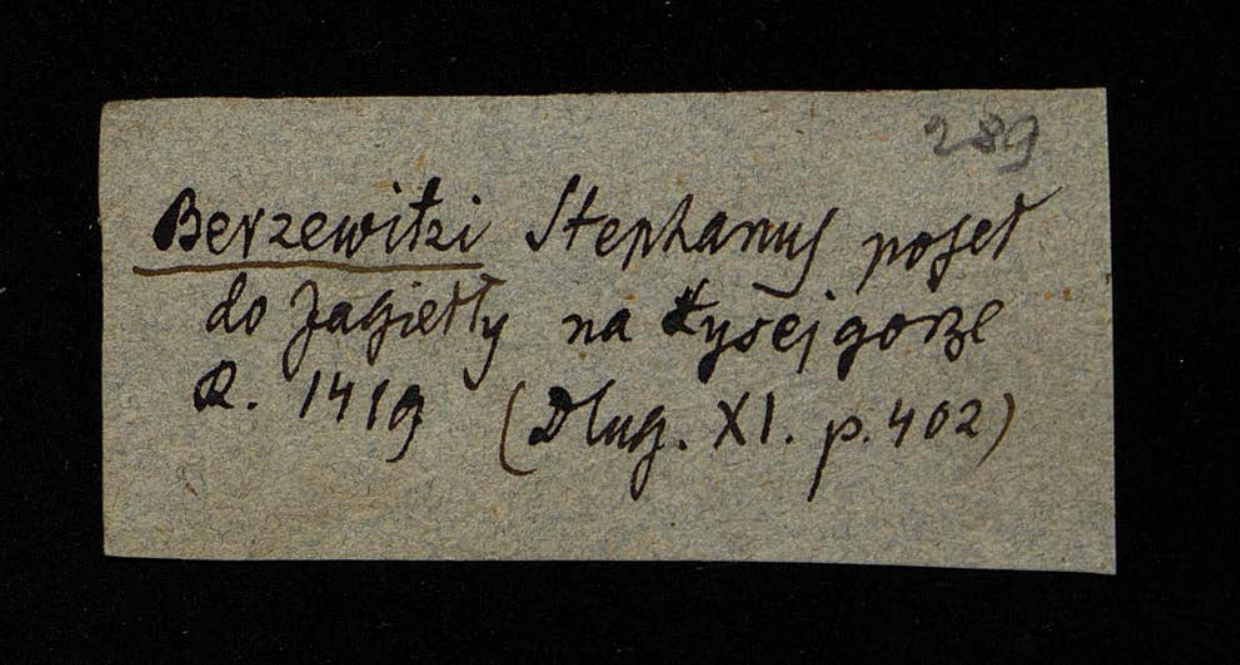 289
Berzewitzi Stephanus poseł
do Jagiełły na Łyséj górze
R. 1419 (Dług. XI. p. 402)